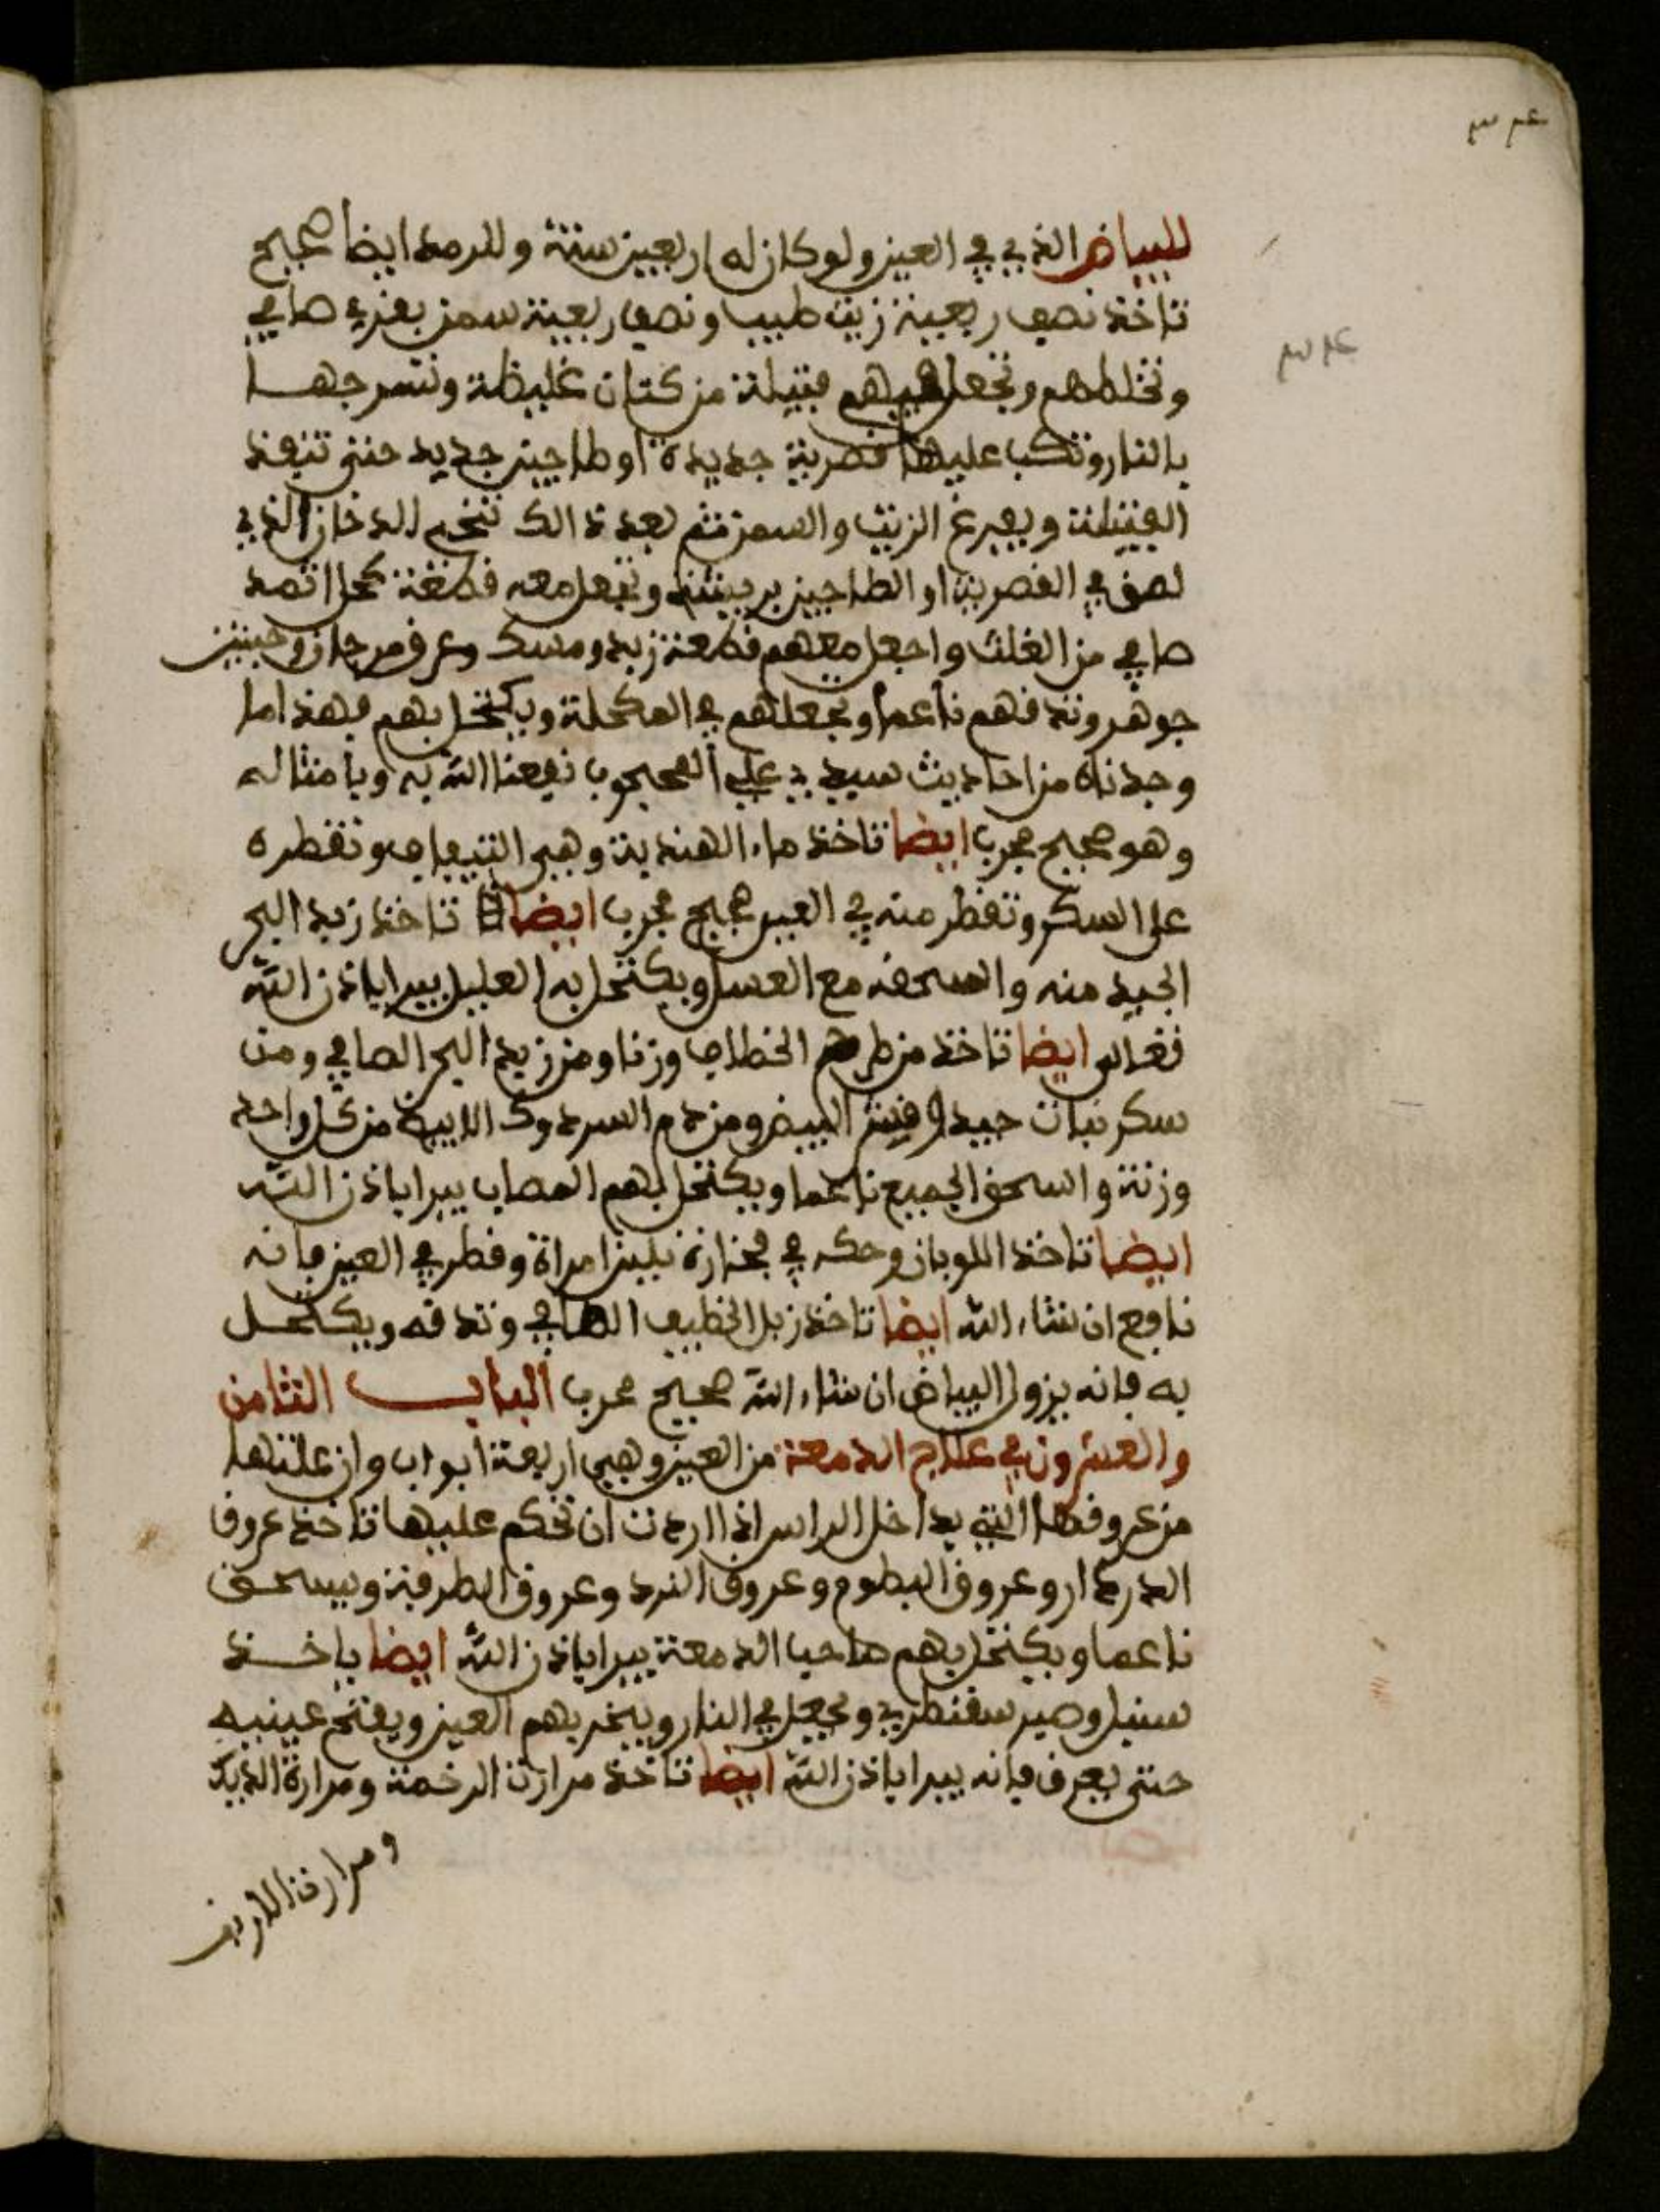 للبياض الذي في العين ولو كان له اربعين سنة وللرمد ايضا صحيح
تاخذ نصف ربعية زيت طيب ونصف ربعية سمن بقري صافي
وتخلطهم وتجعل فيهم فتيلة من كتان غليظة وتسرجها
بالنار وتكب عليها قصرية جديدة او طاجين جديد حتى تنفذ
الفتيلة ويفرغ الزيت والسمن ثم بعد ذالك تنحي الدخان الذي
لصق في القصرية او الطاجين بريشة وتفعل معه قطعة كحل اثمد
صافي من الغلث واجعل معهم قطعة زبد ومسك وعرق مرجان وحبتين
جوهر وتدقهم ناعما وتجعلهم في المكحلة ويكتحل بهم فهذا ما
وجدناه من احاديث سيدي علي المحجوب نفعنا الله به وبامثاله
وهو صحيح مجرب ايضا تاخذ ماء الهندية وهي التيفاف وتقطره
على السكر وتقطر منه في العين صحيح مجرب ايضا تاخذ زبد البحر
الجيد منه واسحقه مع العسل ويكتحل به العليل يبرا باذن الله
تعالى ايضا تاخذ من طرح الخطاف وزنا ومن زبد البحر الصافي ومن
سكر نبات جيد وقشر البيض ومن دم السردوك الابيض من كل واحد
وزنة واسحق الجميع ناعما ويكتحل بهم المصاب يبرا باذن الله
ايضا تاخذ اللوبان وحكه في فخارة بلبن امراة وقطر في العين فانه
نافع ان شاء الله ايضا تاخذ زبل الخطيف الصافي وتدقه ويكتحل
به فانه يزول البياض ان شاء الله صحيح مجرب الباب الثامن
والعشرون في علاج الدمعة من العين وهي اربعة ابواب وان علتها
من عروقها التي بداخل الراس اذا اردت ان تحكم عليها تاخذ عروق
الدردار وعروق البطوم وعروق النرد وعروق الطرفة ويسحق
ناعما ويكتحل بهم صاحب الدمعة يبرا باذن الله ايضا ياخذ
سنبل وصبر سقطري ويجعل في النار ويبخر بهم العين ويفتح عينيه
حتى يعرق فانه يبرا باذن الله ايضا تاخذ مرارت الرخمة ومرارة الديك
ومرارة الارنب
٣٤
٣٤